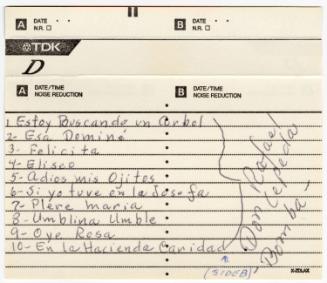 A DATE · ·
N.R. □
B DATE · ·
N.R. □
TDK
D
A DATE/TIME
NOISE REDUCTION
B DATE/TIME
NOISE REDUCTION
1 Estoy Buscando un Arbol
2- Esa Dominé
3- Felicita
4- Elisco
5- Adios mis Ojitos
6- Si yo tuve en la Josefa
7- Plere Maria
8- Umblina Umble
9- Oye Rosa
10- En la Hacienda Caridad
(SIDE B)
Rafael
Don Cepeda
Bomba-
X-2DLAX